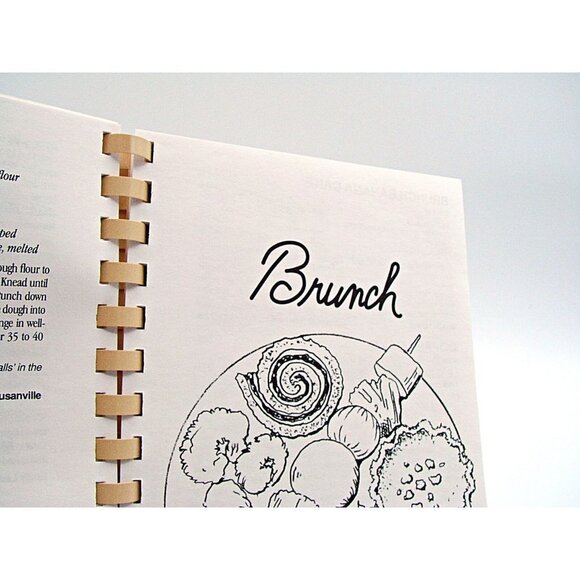 flour
ped
e, melted
ough flour to
Knead until
Punch down
dough into
nge in well-
r 35 to 40
alls' in the
usanville
Brunch